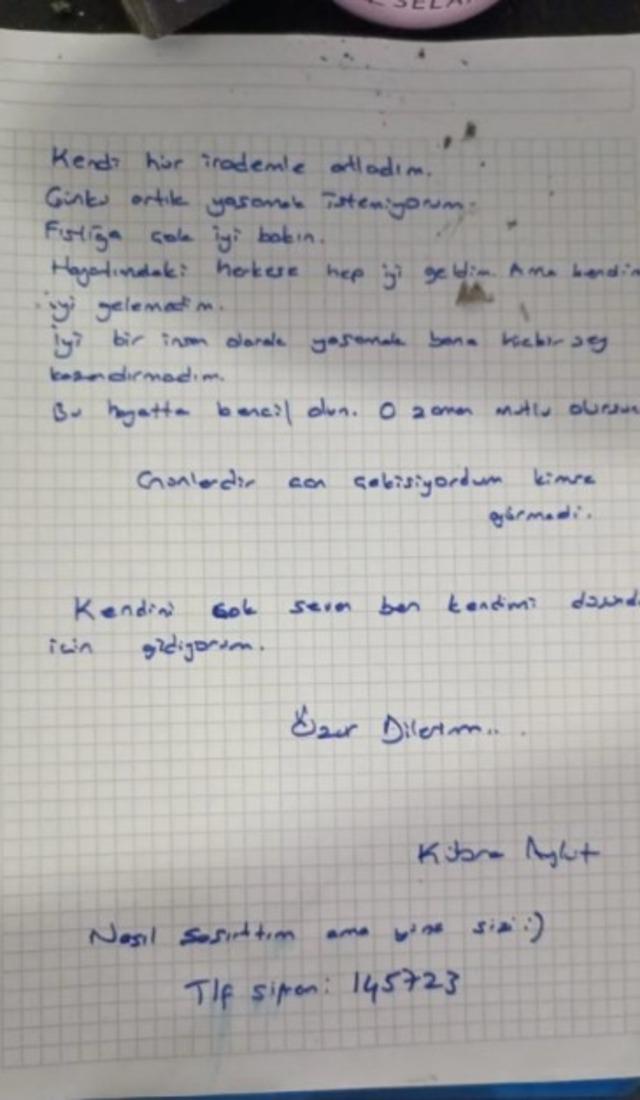 SELA
Kendi hür irademle atladım.
Çünkü artık yaşamak istemiyorum.
Fıstığa çok iyi bakın.
Hayatımdaki herkese hep iyi geldim. Ama kendim
iyi gelemedim.
iyi bir insan olarak yaşamak bana hiçbir şey
kazandırmadım.
Bu hayatta bencil olun. O zaman mutlu olursun
Günlerdir can çekişiyordum kimse
görmedi.
Kendini çok seven ben kendimi
için gidiyorum.
Özür Dilerim...
Kübra Aykut
Nasıl şaşırttım ama yine sizi :)
Tlf şifrem: 145723